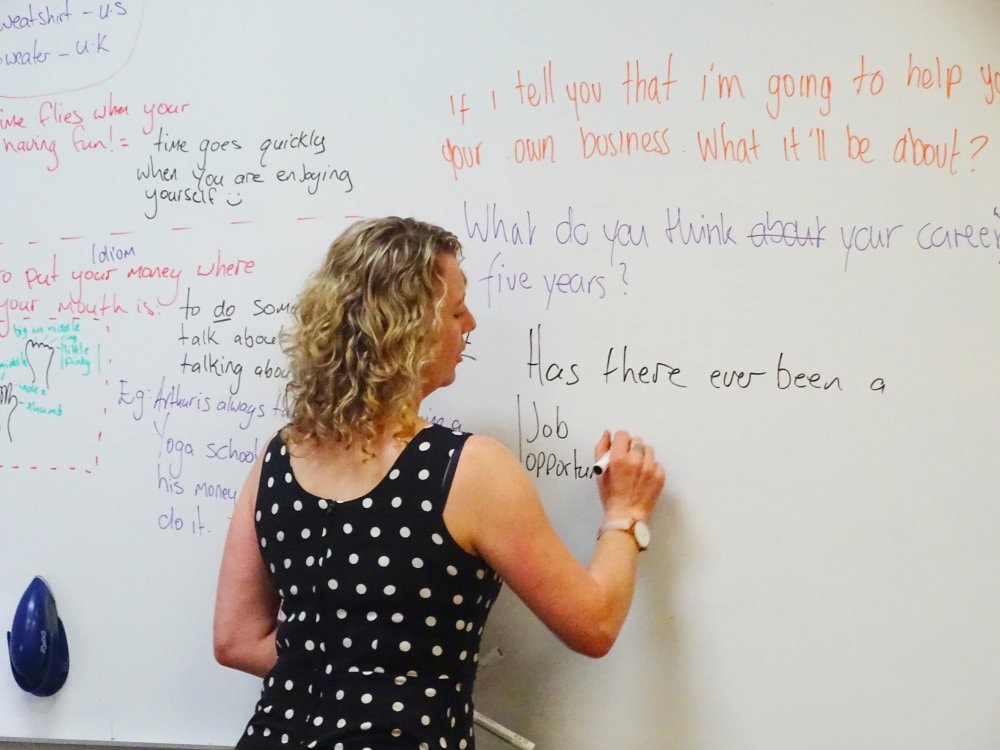 weatshirt - U.S
weater - U.K
ime flies when your
having fun! =
time goes quickly
when you are enjoying
yourself
Idiom
to put your money where
your mouth is:
to do som
talk abou
talking abou
Eg: Arthur is always ta
ing a
Yoga school
his money
do it.
big
middle
ring
little
pinky
middle
index
thumb
If I tell you that i'm going to help yo
your own business. What it'll be about?
What do you think about your career
five years?
Has there ever been a
Job
opportun